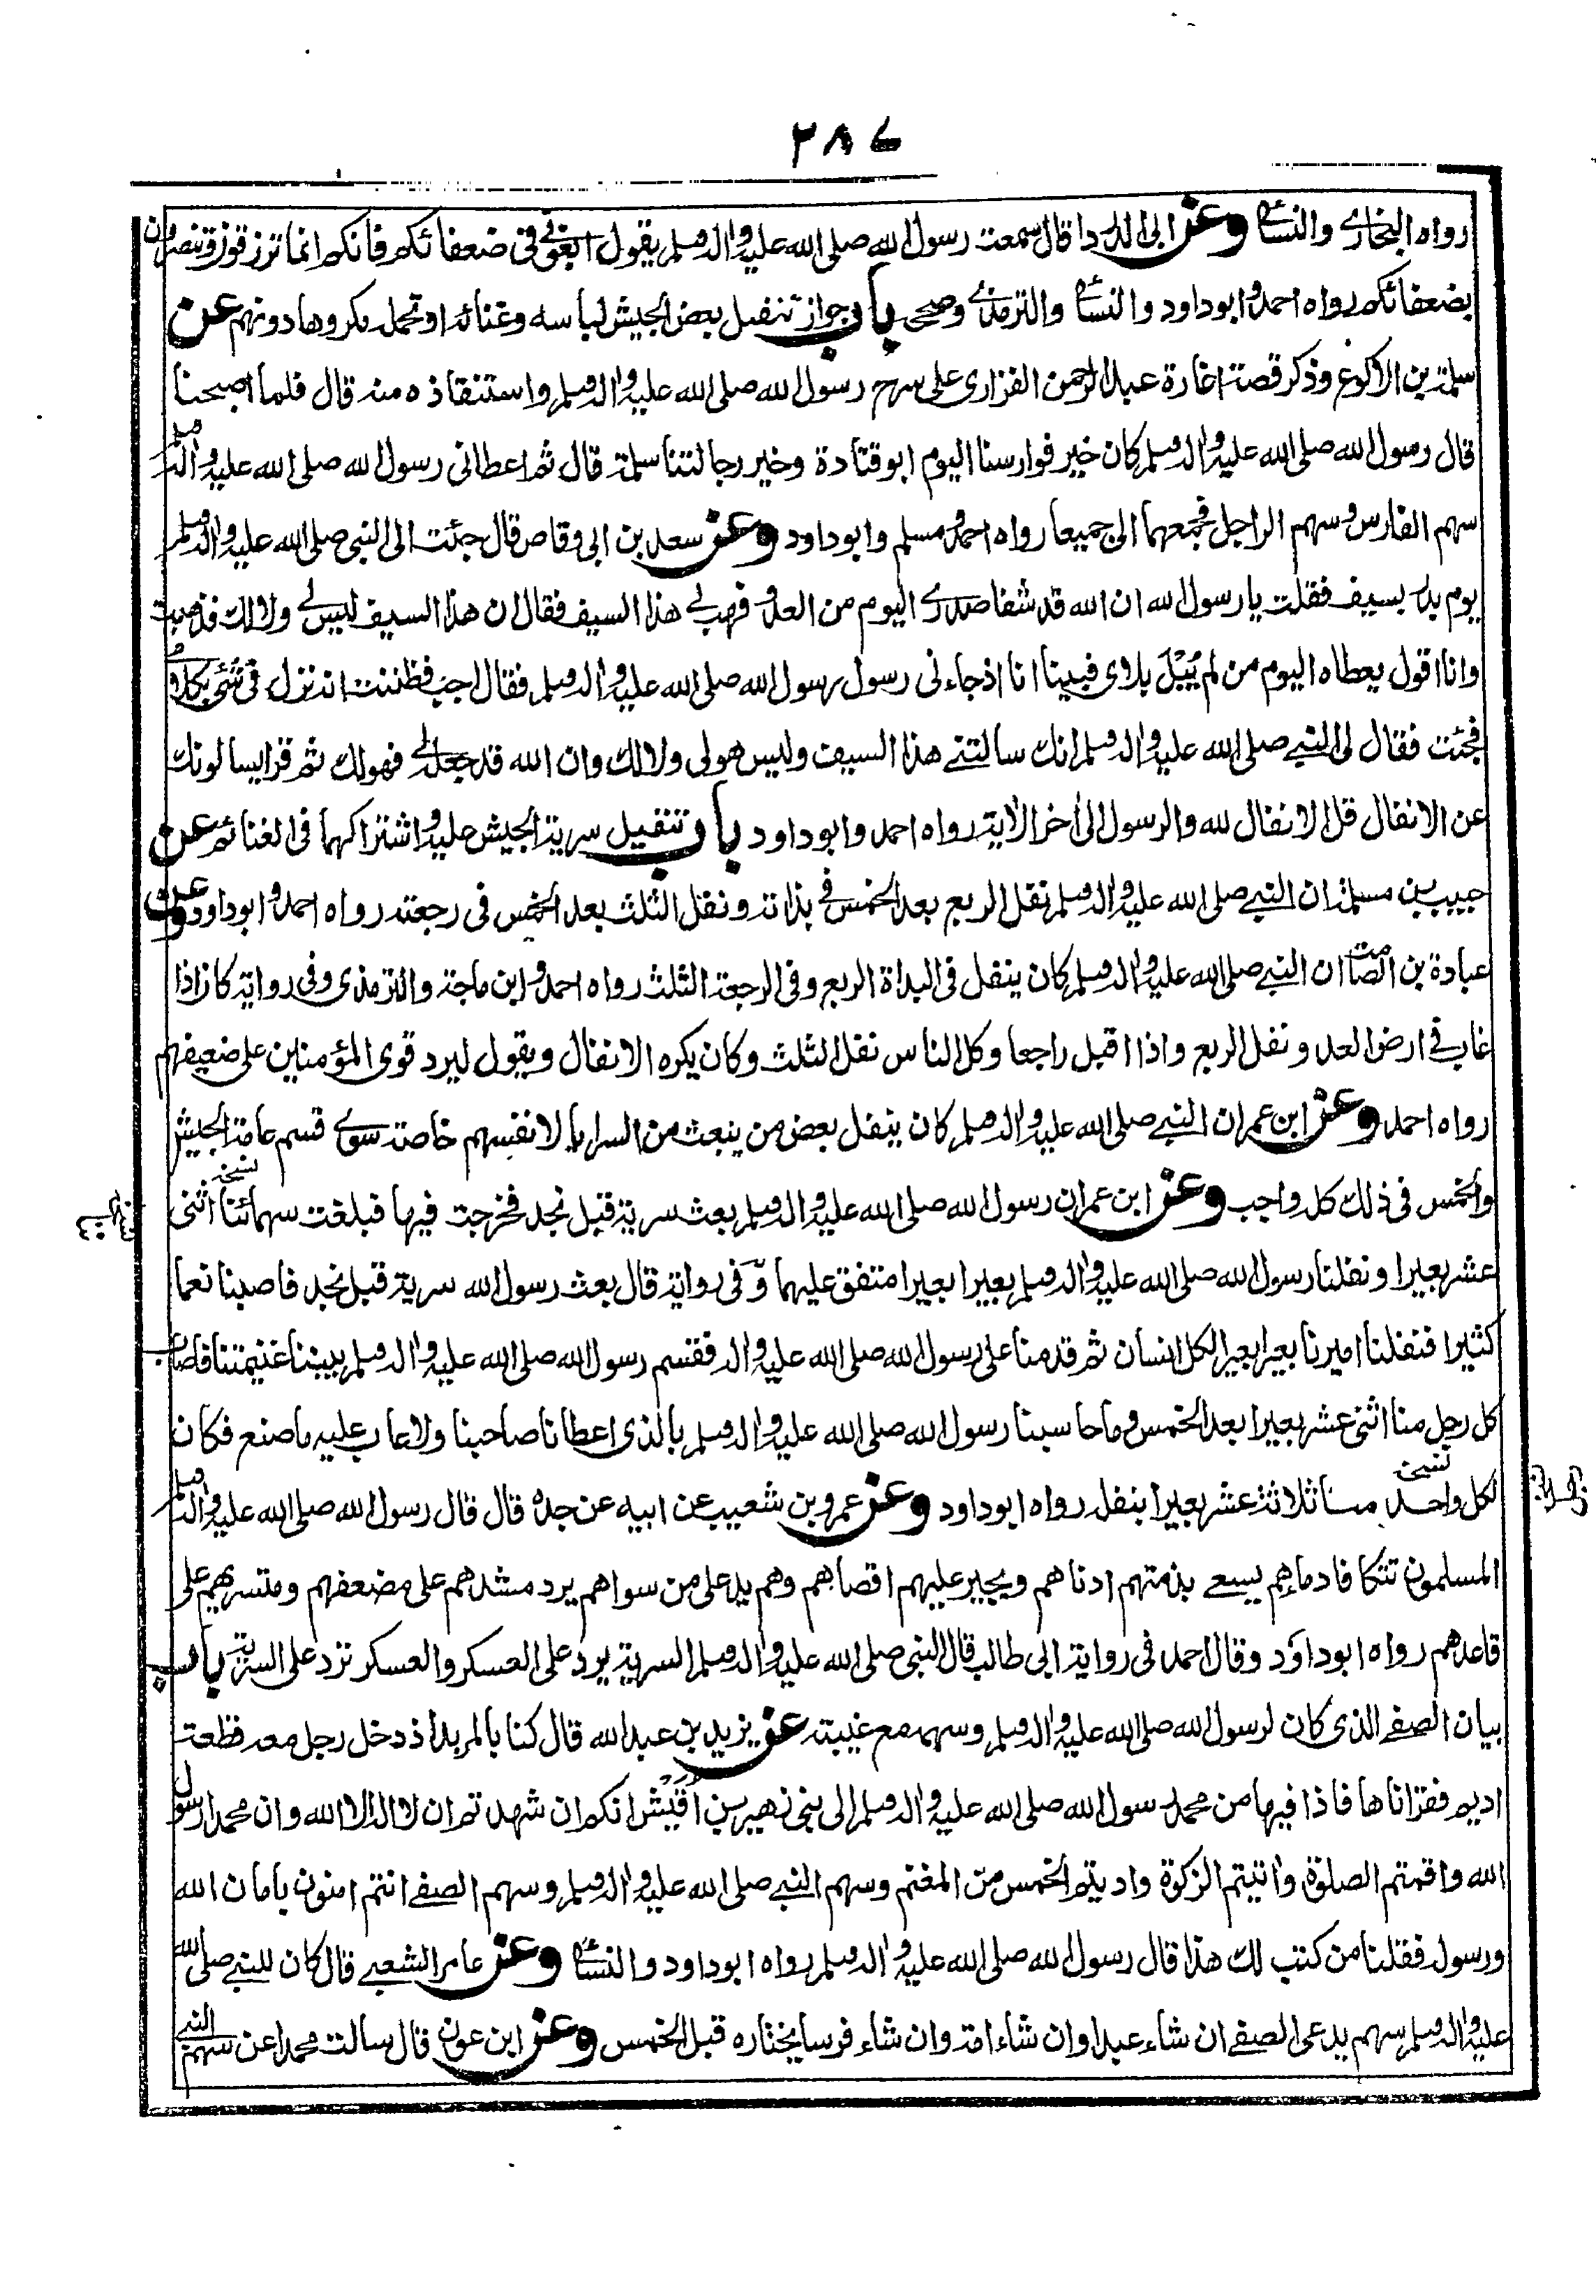 ٢٨٧
رواه البخاري والنسائي وعن ابى الدرداء قال سمعت رسول الله صلى الله عليه واله وسلم يقول ابغوني في ضعفائكم فانكم انما ترزقون وتنصرون
بضعفائكم رواه احمد وابوداود والنسائي والترمذي وصححه باب جواز تنفيل بعض الجيش لباسه وغنائه او تحمله مكروها دونهم عن
سلمة بن الاكوع وذكر قصة اغارة عبد الرحمن الفزارى على سرح رسول الله صلى الله عليه واله وسلم واستنقاذه منه قال فلما اصبحنا
قال رسول الله صلى الله عليه واله وسلم كان خير فوارسنا اليوم ابو قتادة وخير رجالتنا سلمة قال ثم اعطانى رسول الله صلى الله عليه واله وسلم
سهم الفارس وسهم الراجل فجمعهما الى جميعا رواه احمد ومسلم وابوداود وعن سعد بن ابى وقاص قال جئت الى النبى صلى الله عليه واله وسلم
يوم بدر بسيف فقلت يا رسول الله ان الله قد شفا صدري اليوم من العدو فهب لي هذا السيف فقال ان هذا السيف ليس لي ولا لك فذهبت
وانا اقول يعطاه اليوم من لم يُبْلَ بلاى فبينا انا اذ جاءنى رسول رسول الله صلى الله عليه واله وسلم فقال اجب فظننت انه نزل في شئ بكلامي
فجئت فقال لى النبي صلى الله عليه واله وسلم انك سالتني هذا السيف وليس هو لى ولا لك وان الله قد جعله لي فهو لك ثم قرا يسالونك
عن الانفال قل الانفال لله والرسول الى اخر الاية رواه احمد وابوداود باب تنفيل سرية الجيش عليه واشتراكهما في الغنائم عن
حبيب بن مسلمة ان النبي صلى الله عليه واله وسلم نفل الربع بعد الخمس في بداته ونفل الثلث بعد الخمس في رجعته رواه احمد وابوداود وعن
عبادة بن الصامت ان النبي صلى الله عليه واله وسلم كان ينفل في البداة الربع وفي الرجعة الثلث رواه احمد وابن ماجة والترمذي وفي رواية كان اذا
غاب في ارض العدو نفل الربع واذا اقبل راجعا وكل الناس نفل الثلث وكان يكره الانفال ويقول ليرد قوى المؤمنين على ضعيفهم
رواه احمد وعن ابن عمر ان النبي صلى الله عليه واله وسلم كان ينفل بعض من يبعث من السرايا لانفسهم خاصة سوي قسم عامة الجيش
والخمس في ذلك كل واجب وعن ابن عمر ان رسول الله صلى الله عليه واله وسلم بعث سرية قبل نجد فخرجت فيها فبلغت سهمائنا نسخة اثنى
عشر بعيرا ونفلنا رسول الله صلى الله عليه واله وسلم بعيرا بعيرا متفق عليهما وفي رواية قال بعث رسول الله سرية قبل نجد فاصبنا نعما
كثيرا فنفلنا اميرنا بعيرا بعيرا لكل انسان ثم قدمنا على رسول الله صلى الله عليه واله فقسم رسول الله صلى الله عليه واله وسلم بيننا غنيمتنا فاصاب
كل رجل منا اثنى عشر بعيرا بعد الخمس وما حاسبنا رسول الله صلى الله عليه واله وسلم بالذى اعطانا صاحبنا ولا عاب عليه ما صنع فكان
لكل واحد نسخة منا ثلاثة عشر بعيرا بنفله رواه ابوداود وعن عمرو بن شعيب عن ابيه عن جده قال قال رسول الله صلى الله عليه واله وسلم
المسلمون تتكافا دماءهم يسعي بذمتهم ادناهم ويجير عليهم اقصاهم وهم يد على من سواهم يرد مشدهم على مضعفهم ومتسريهم على
قاعدهم رواه ابوداود وقال احمد في رواية ابى طالب قال النبى صلى الله عليه واله وسلم السرية يرد على العسكر والعسكر ترد على السرية باب
بيان الصفي الذى كان لرسول الله صلى الله عليه واله وسلم وسهمه مع غيبته عن يزيد بن عبد الله قال كنا بالمربد اذ دخل رجل معه قطعة
اديم فقراناها فاذا فيها من محمد رسول الله صلى الله عليه واله وسلم الى بنى زهير بن اُقَيْش انكم ان شهدتم ان لا اله الا الله وان محمدا رسول
الله واقمتم الصلوة واتيتم الزكوة واديتم الخمس من المغنم وسهم النبي صلى الله عليه واله وسلم وسهم الصفي انتم امنون بامان الله
ورسوله فقلنا من كتب لك هذا قال رسول الله صلى الله عليه واله وسلم رواه ابوداود والنسائي وعن عامر الشعبي قال كان للنبي صلى الله
عليه واله وسلم سهم يدعى الصفي ان شاء عبدا وان شاء امة وان شاء فرسا يختاره قبل الخمس وعن ابن عون قال سالت محمدا عن سهم النبي